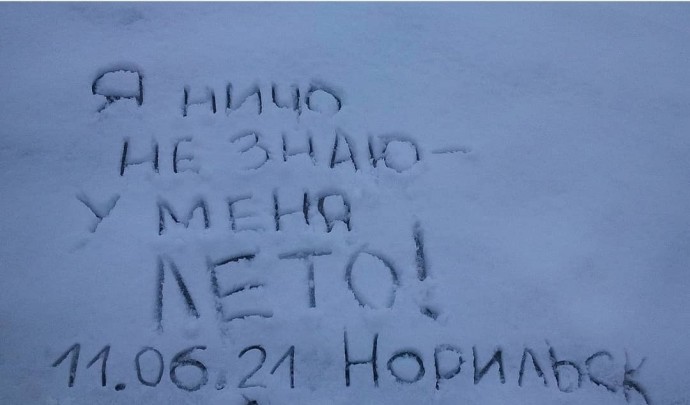 Я НИЧО
НЕ ЗНАЮ –
У МЕНЯ
ЛЕТО!
11.06.21 Норильск